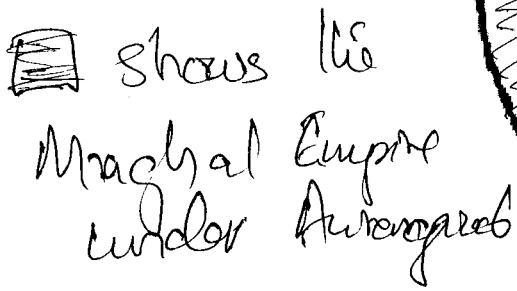 shows the
Mughal Empire
under Aurangzeb